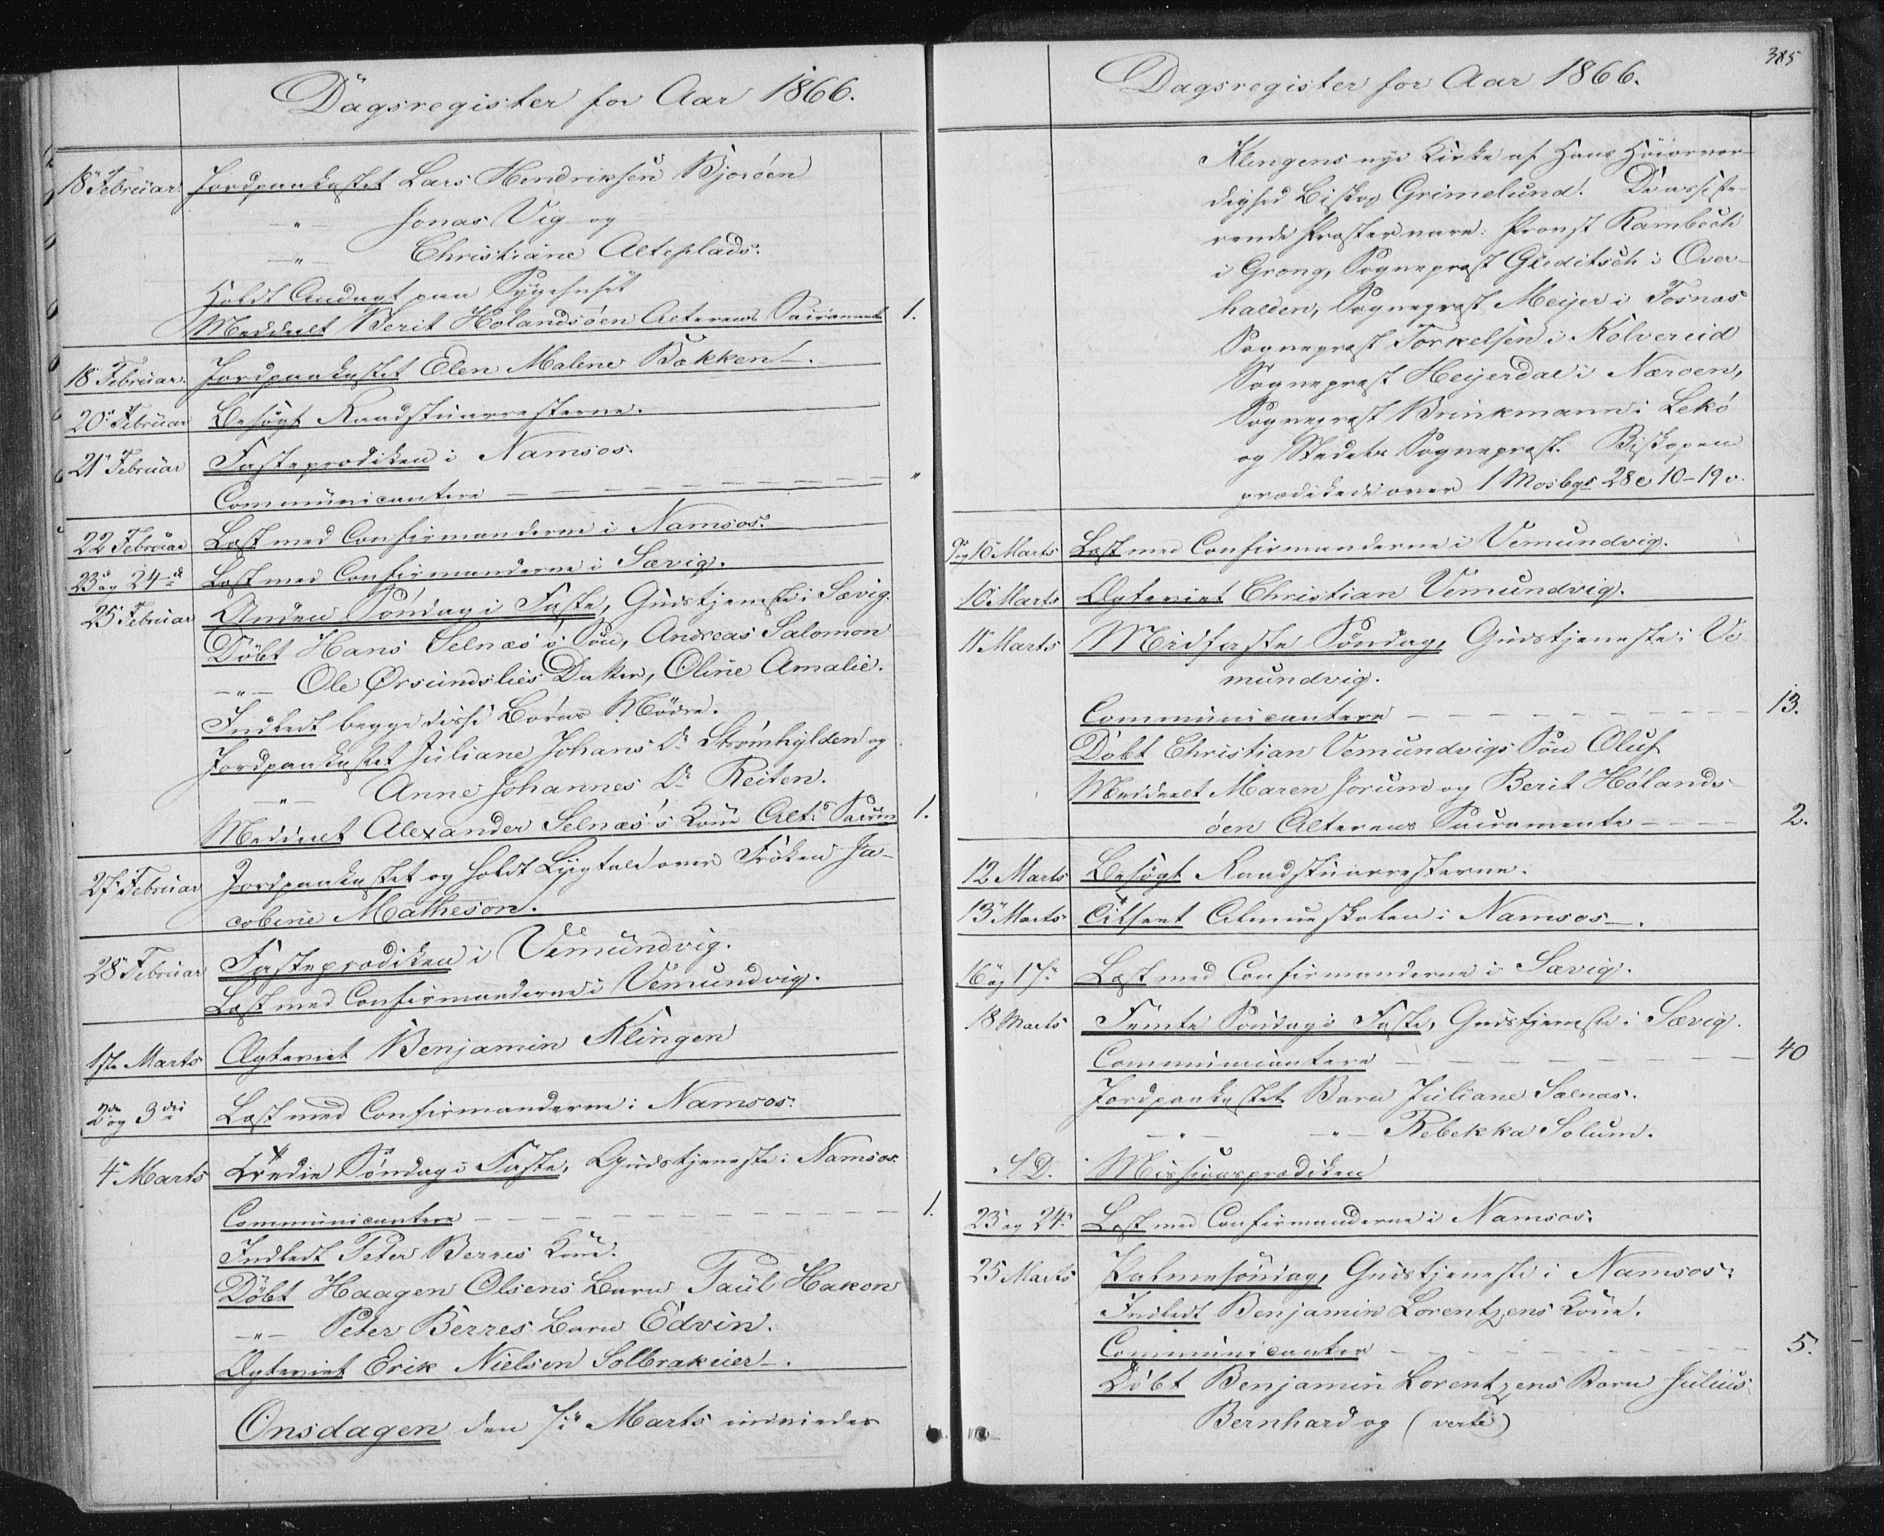 Dagsregister for Aar 1866.
18 Februar. Jordpaakastet Lars Hendriksen Bjorøen
-„- Jonas Vig og
-„- Christiane Alteplads.
Holdt Andagt paa Sygehuset
Meddeelt Berit Holandsøen Alterens Sacramente 1.
18 Februar. Jordpaakastet Elen Malene Bakken.
20 Februar Besøgt Raadstuarresterne.
21 Februar Fasteprædiken i Namsos.
Communicantere „
22 Februar Læst med Confirmanderne i Namsos.
23 og 24de Læst med Confirmanderne i Sævig.
25 Februar Anden Søndag i Faste, Gudstjeneste i Sævig.
Døbt Hans Selnæs's Søn, Andreas Salomon
-„- Ole Ørsundslies Datter, Oline Amalie.
Indledt begge disse Børns Mødre.
Jordpaakastet Juliane Johans Dr Strømhylden og
-„- Anne Johannes Dr Reiten.
Meddeelt Alexander Selnæs's Kone Alts Sacram 1.
27 Februar Jordpaakastet og holdt Liigtale over Frøken Ja-
cobine Matheson.
28 Februar Fasteprædiken i Vemundvig.
Læst med Confirmanderne i Vemundvig.
1ste Marts Ægteviet Benjamin Klingen
2de og 3die Læst med Confirmanderne i Namsos.
4 Marts Tredie Søndag i Faste, Gudstjeneste i Namsos.
Communicantere 1.
Indledt Peter Berres Kone.
Døbt Haagen Olsens Barn Paul Hakon
-„- Peter Berres Barn Edvin.
Ægteviet Erik Nielsen Solbrakeier.
Onsdagen den 7de Marts indviedes
385
Dagsregister for Aar 1866.
Klingens nye Kirke af Hans Høiærvær-
dighed Biskop Grimelund. De assiste-
rende Præster vare: Provst Rambech
i Grong, Sognepræst Gleditsch i Over-
halden, Sognepræst Meijer i Fosnæs
Sognepræst Torkelsen i Kolvereid
Sognepræst Heijerdal i Nærøen,
Sognepræst Brinkmann i Lekø
og Stedets Sognepræst. Biskopen
prædikede over 1 Mosbgs 28 c 10-19 v.
9 og 10 Marts Læst med Confirmanderne i Vemundvig.
10 Marts Ægteviet Christian Vemundvig.
11 Marts Midfaste Søndag, Gudstjeneste i Ve
mundvig.
Communicantere 13.
Døbt Christian Vemundvigs Søn Oluf
Meddeelt Maren Jorum og Berit Hølands-
øen Alterens Sacramente 2.
12 Marts Besøgt Raadstuarresterne.
13 Marts Tilseet Almueskolen i Namsos.
16 og 17. Læst med Confirmanderne i Sævig.
18 Marts Femte Søndag i Faste, Gudstjeneste i Sævig.
Communicantere 40
Jordpaakastet Barn Juliane Salnæs.
-„- -„- Rebekka Solum.
S. D. Missionsprædiken
23 og 24. Læst med Confirmanderne i Namsos.
25 Marts Palmesøndag, Gudstjeneste i Namsos.
Indledt Benjamin Lorentzens Kone.
Communicanter 5.
Døbt Benjamin Lorentzens Barn Julius
Bernhard og (verte)